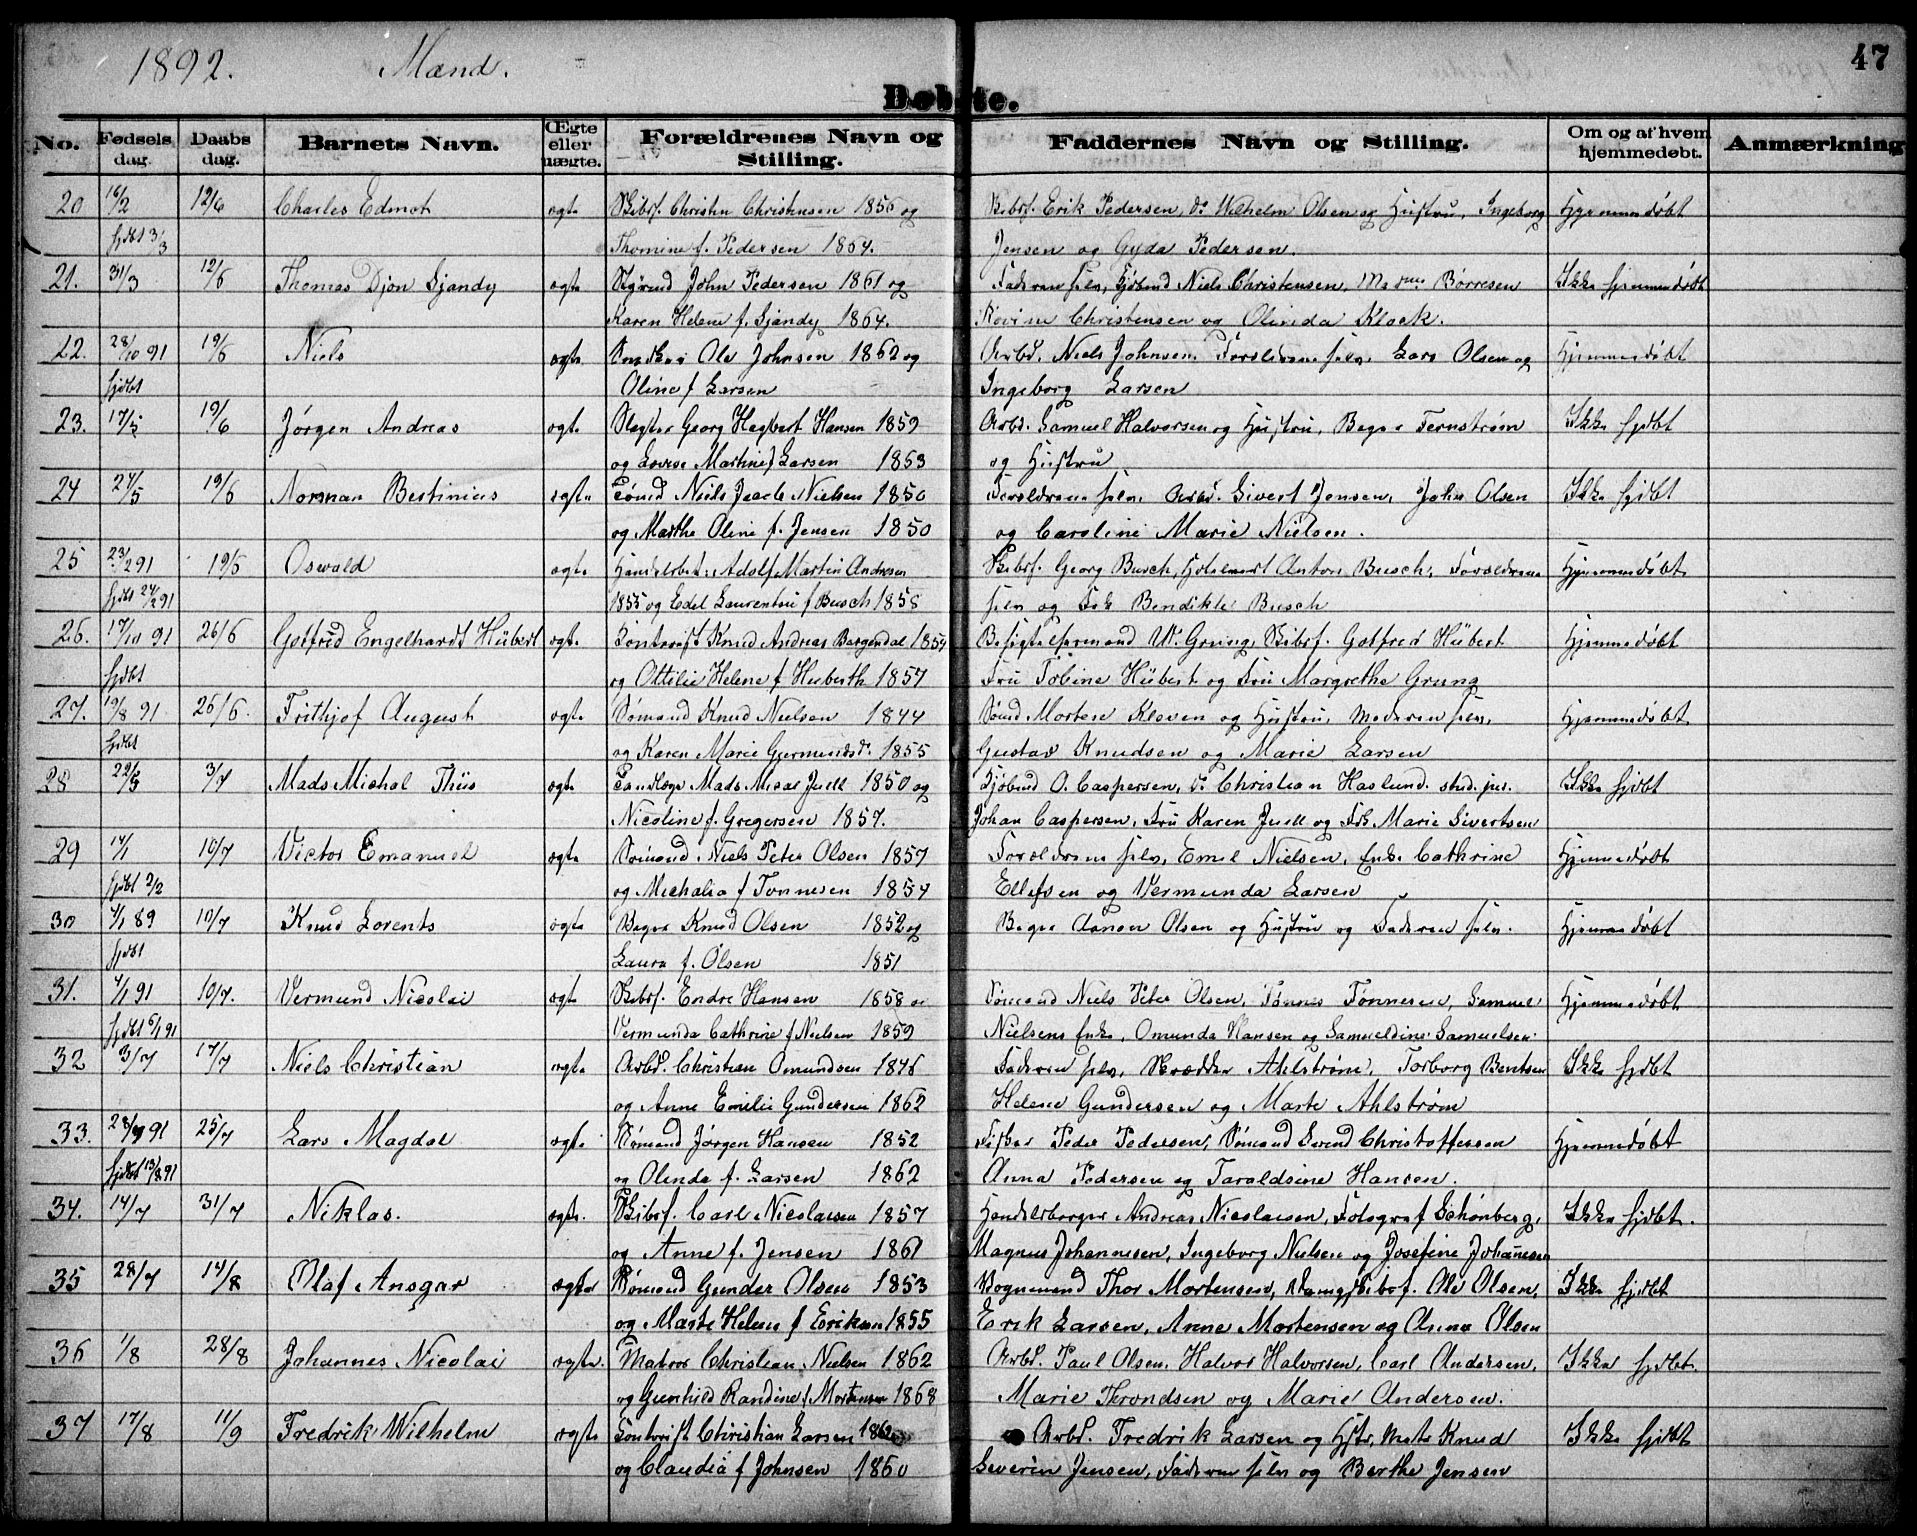 1892. Mænd. 47
Døbte.
No. Fødsels dag. Daabs dag. Barnets Navn. Œgte eller uægte. Forældrenes Navn og Stilling. Faddernes Navn og Stilling. Om og af hvem hjemmedøbt. Anmærkning
20 16/2 12/6 Charles Edmot ægte Skibsf. Christen Christensen 1856 og Skibsf. Erik Pedersen, do Wilhelm Olsen og Hustru, Ingeborg Hjemmedøbt
hjdbt 3/3 Thomine f. Pedersen 1864. Jensen og Gyda Pedersen.
21. 31/3 12/6 Thomas Djon Gjandy ægte Styrmd John Pedersen 1861 og Faderen selv, Kjøbmd Niels Christensen, Børresen Ikke hjemmedøbt
Karen Helene f. Gjandy 1864. Christensen og Olinda Klock.
22. 28/10 91 19/6 Niels ægte Snedker Ole Johnsen 1862 og Arbd. Niels Johnsen, Forældrene selv, Lars Olsen og Hjemmedøbt
hjdbt Oline f Larsen Ingeborg Larsen
23. 17/5 19/6 Jørgen Andreas ægte Slagter Georg Hagbart Hansen 1859 Arbd. Samuel Halvorsen og Hustru, Bager Fernstrøm Ikke hjdbt
og Lovise Martine f Larsen 1853 og Hustru
24 24/5 19/6 Norman Bestinius ægte Tømd Niels Jacob Nielsen 1850 Forældrene selv, Arbd. Sivert Jensen, John Olsen Ikke hjdbt
og Marthe Oline f. Jensen 1850 og Caroline Marie Nielsen.
25 23/2 91 19/6 Oswald ægte Adolf Martin Andresen Skibsf. Georg Busch, Anton Busch, Forældrene Hjemmedøbt
hjdbt 24/2 91 1855 og Edel Laurentine f Busch 1858 selv og Frk Bendikte Busch
26. 17/10 91 26/6 Gotfred Engelhardt Hübert ægte Knud Andreas Bergendal W. Grung, Skibsf. Gotfred Hübert Hjemmedøbt
hjdbt og Ottilie Helene f Huberth 1857 Fru Tobine Hübert og Fru Margrethe Grung
27. 19/8 91 26/6. Frithjof August ægte Sømand Knud Nielsen 1844 Sømd Morten Kleven og Hustru, Moderen selv, Hjemmedøbt
hjdbt og Karen Marie Gjermundsd. 1855 Gustav Knudsen og Marie Larsen
28 22/5 3/7 Mads Michal Thiis ægte Tandlæge Mads Juell 1850 og Kjøbmd O. Caspersen, do Christian Haslund. stud. jur. Ikke hjdbt
Nicoline f. Gregersen 1857. Johan Caspersen, Fru Karen Juell og Frk. Marie Sivertsen
29 14/1 10/7 Victor Emanuel ægte Sømand Niels Peter Olsen 1857 Forældrene selv, Emil Nielsen, Enke Cathrine Hjemmedøbt
hjdbt 2/2 og Michalia f Tønnesen 1854 Ellefsen og Vermunda Larsen
30 4/1 89 10/7 Knud Lorents ægte Bager Knud Olsen 1852 og Bager Aanon Olsen og Hustru og Faderen selv. Hjemmedøbt
hjdbt Laura f. Olsen 1851
31. 4/1 91 10/7. Vermund Nicolai ægte Skibsf. Endre Hansen 1858 og Sømand Niels Peter Olsen, Tønnes Tønnesen, Samuel Hjemmedøbt
hjdbt 6/1 91 Vermunda Cathrine f Nielsen 1859 Nielsens Enke, Omunda Hansen og Samueldine Samuelsen.
32 3/7 17/7 Niels Christian ægte Arbd. Christian Omundsen 1846 Faderen selv, Skrædder Ahlstrøm, Torborg Bentsen Ikke hjdbt
og Anne Emilie Gundersen 1862 Helene Gundersen og Marte Ahlstrøm
33. 28/7 91 25/7 Lars Magdal ægte Sømand Jørgen Hansen 1852 Fisker Peder Pedersen, Sømand Svend Christoffersen Hjemmedøbt
hjdbt 13/8 91 og Olinda f. Larsen 1862 Anna Pedersen og Taraldsine Hansen.
34. 14/7 31/7 Niklas. ægte. Skibsf. Carl Nicolaisen 1857 Handelsborger Andreas Nicolaisen, Fotograf Schønberg, Ikke hjdbt.
og Anne f. Jensen 1861 Magnus Johannesen, Ingeborg Nielsen og Josefine Johannesen
35 28/7 14/8 Olaf Ansgar ægte Sømand Gunder Olsen 1853 Vognmand Thor Mortensen, Ole Olsen, Ikke hjdbt
og Marte Helene f Eriksen 1855 Erik Larsen, Anne Mortensen og Anna Olsen
36 1/8 28/8 Johannes Nicolai ægte. Matros Christian Nielsen 1862 Arbd. Paul Olsen, Halvor Halvorsen, Carl Andersen, Ikke hjdbt.
og Gunhild Randine f. Mortensen 1868 Marie Throndsen og Marie Andersen.
37 17/8 11/9 Fredrik Wilhelm ægte Christian Larsen Arbd. Fredrik Larsen og Hstr, Knud Ikke hjdbt
og Claudia f Johnsen 1860 Severin Jensen, Faderen selv og Berthe Jensen